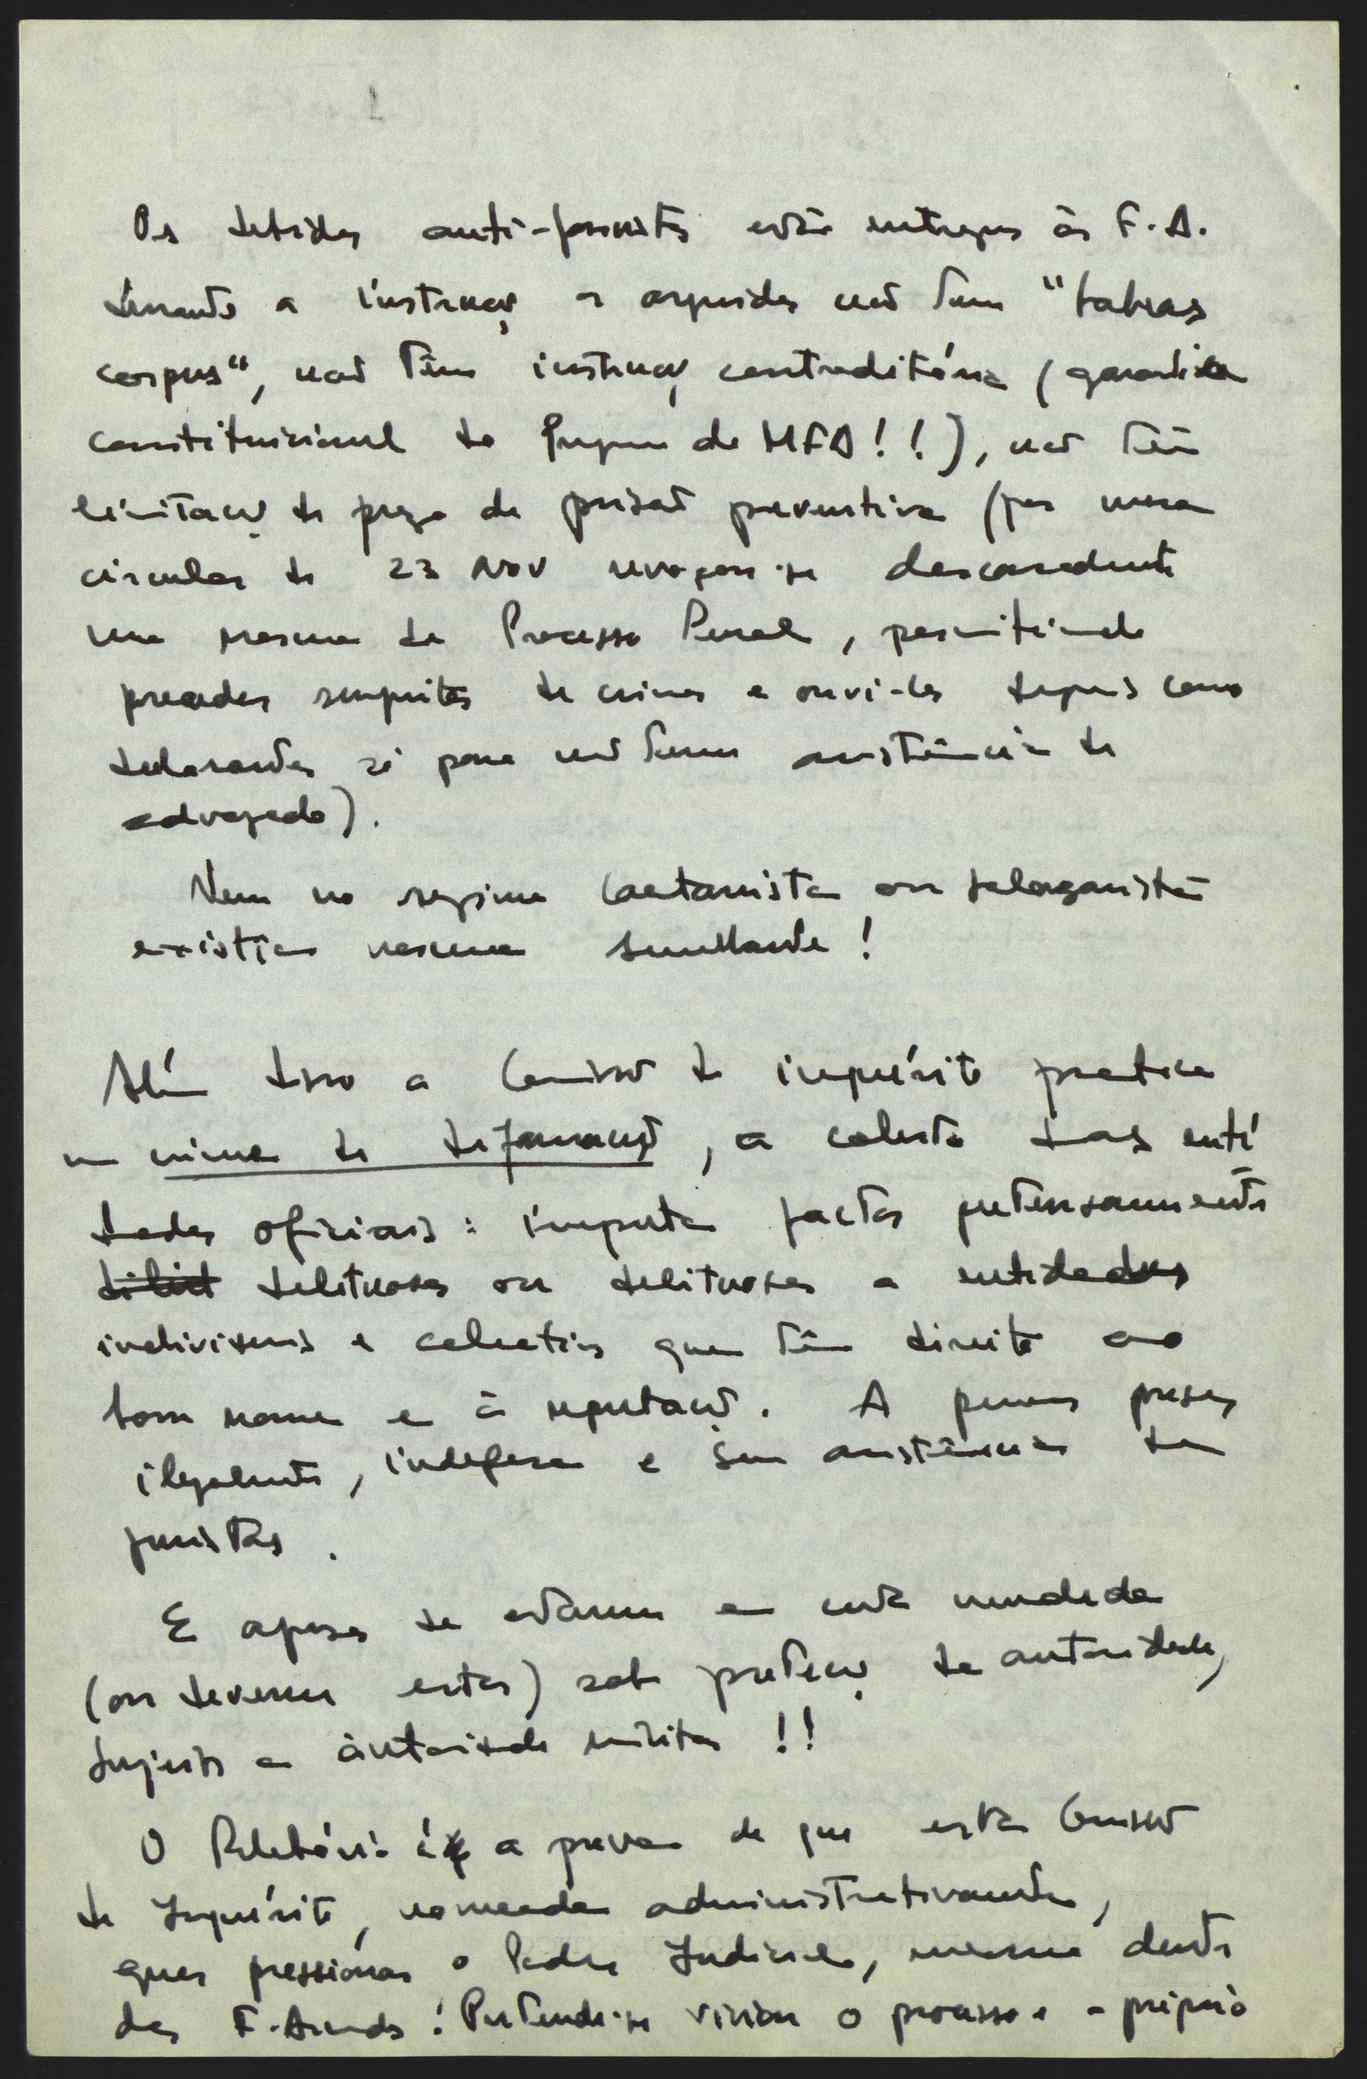 Os detidos anti-fascistas estão entregues às F.A.
durante a instrução os arguidos não têm "habeas
corpus", não têm instrução contraditória (garantia
constitucional do Programa do MFA!!), não têm
limitação de prazo de prisão preventiva (por mera
circular de 23 Nov revogou-se descaradamente
uma norma de Processo Penal, permitindo
prender suspeitos de crimes e ouvi-los depois como
declarantes só para não terem assistência de
advogado).
Nem no regime Caetanista ou salazarista
existia norma semelhante!
Além disso a Comissão de inquérito pratica
um crime de difamação, a coberto das enti
dades oficiais: imputa factos pretensamente
delituosos ou delituosos a entidades
individuais e colectivas que têm direito ao
bom nome e à reputação. A pessoas presas
ilegalmente, indefesas e sem assistência de
juristas.
E apesar de estarem em certa medida
(ou deverem estar) sob protecção da autoridade,
sujeitos a autoridade militar!!
O Relatório é a prova de que esta Comissão
de Inquérito, nomeada administrativamente,
quer pressionar o Poder Judicial, mesmo dentro
das F. Armadas! Pretende-se viciar o processo e o próprio